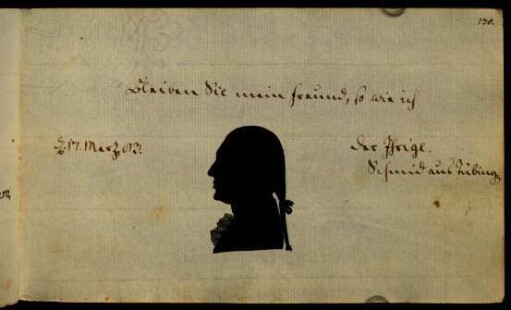 130.
Bleiben Sie mein Freund, so wie ich
17. Merz
der Ihrige.
Schmid aus Tübing.